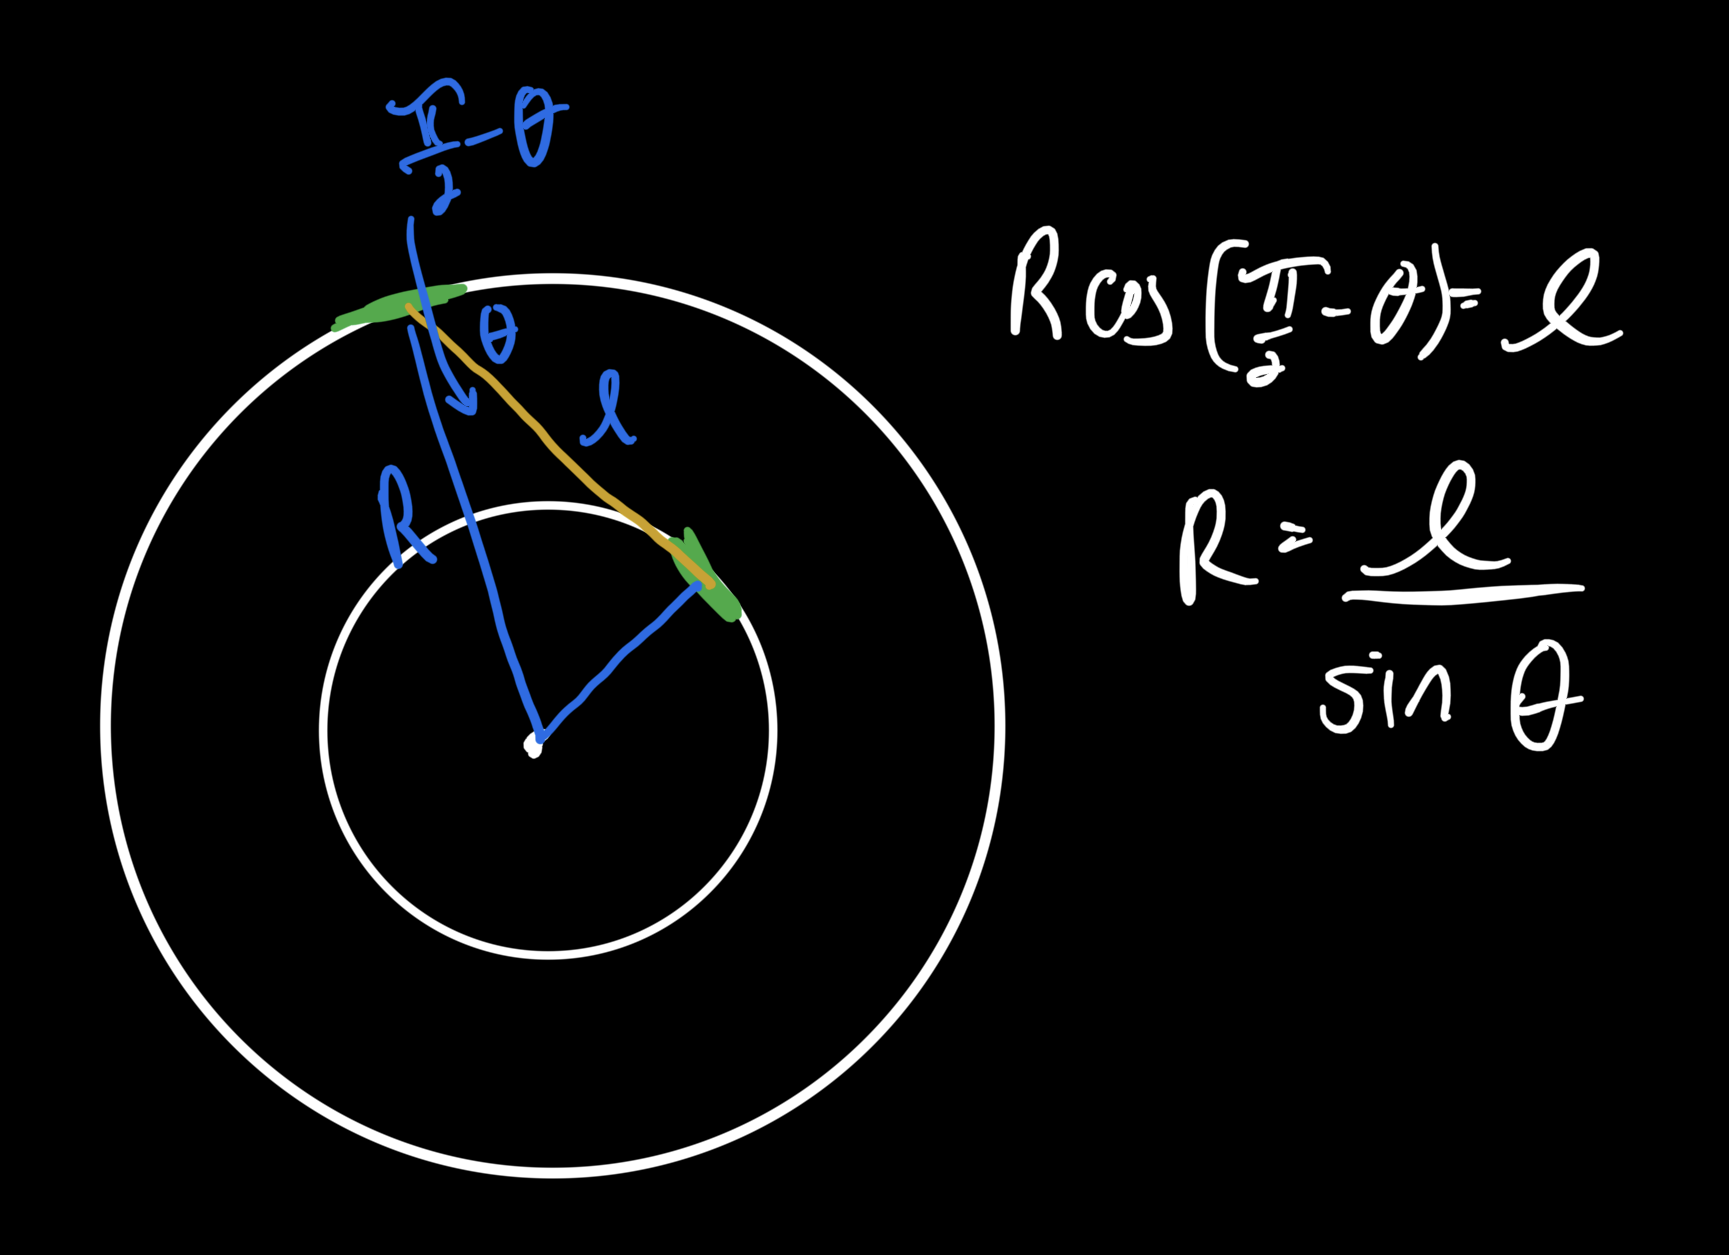 π/2 - θ
θ
l
R
R cos(π/2 - θ) = l
R = l / sin θ